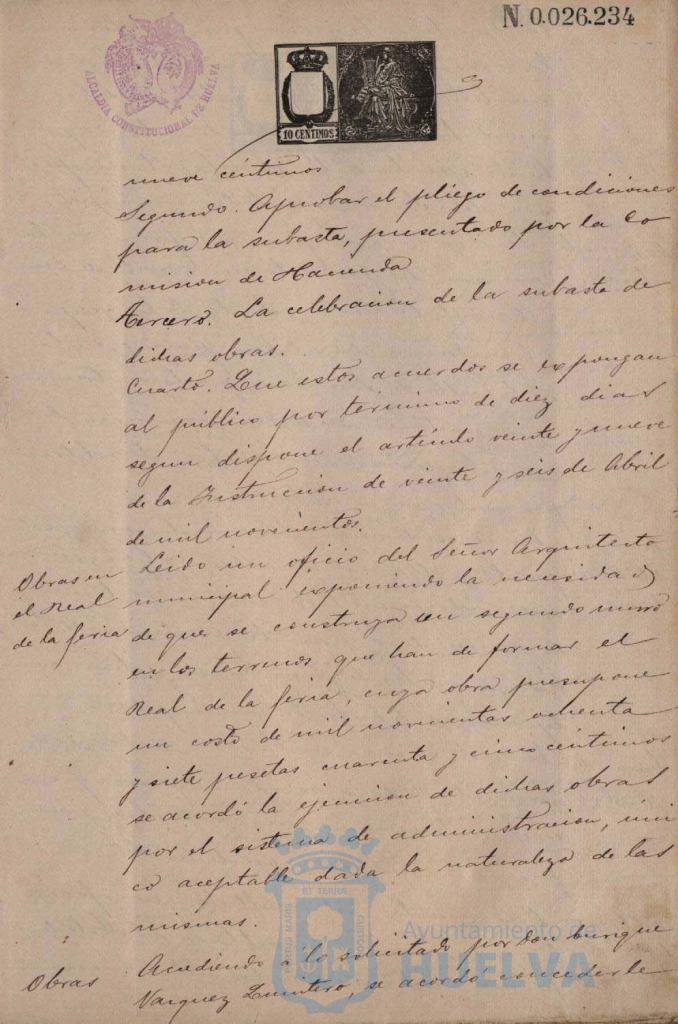 N. 0.026.234
ALCALDIA CONSTITUCIONAL DE HUELVA
10 CENTIMOS
nueve céntimos
Segundo. Aprobar el pliego de condiciones
para la subasta, presentado por la Co
mision de Hacienda
Tercero. La celebracion de la subasta de
dichas obras.
Cuarto. Que estos acuerdos se expongan
al público por término de diez dias
segun dispone el artículo veinte y nueve
de la Instruccion de veinte y seis de Abril
de mil novecientos.
Obras en
el Real
de la feria
Leido un oficio del Señor Arquitecto
municipal exponiendo la necesidad
de que se construya un segundo muro
en los terrenos que han de formar el
Real de la feria, cuya obra presupone
un costo de mil novecientas ochenta
y siete pesetas cuarenta y cinco céntimos
se acordó la ejecucion de dichas obras
por el sistema de administracion, úni
co aceptable dada la naturaleza de las
mismas.
Obras
Accediendo á lo solicitado por Don Enrique
Vazquez Quintero, se acordó concederle
Ayuntamiento de
HUELVA